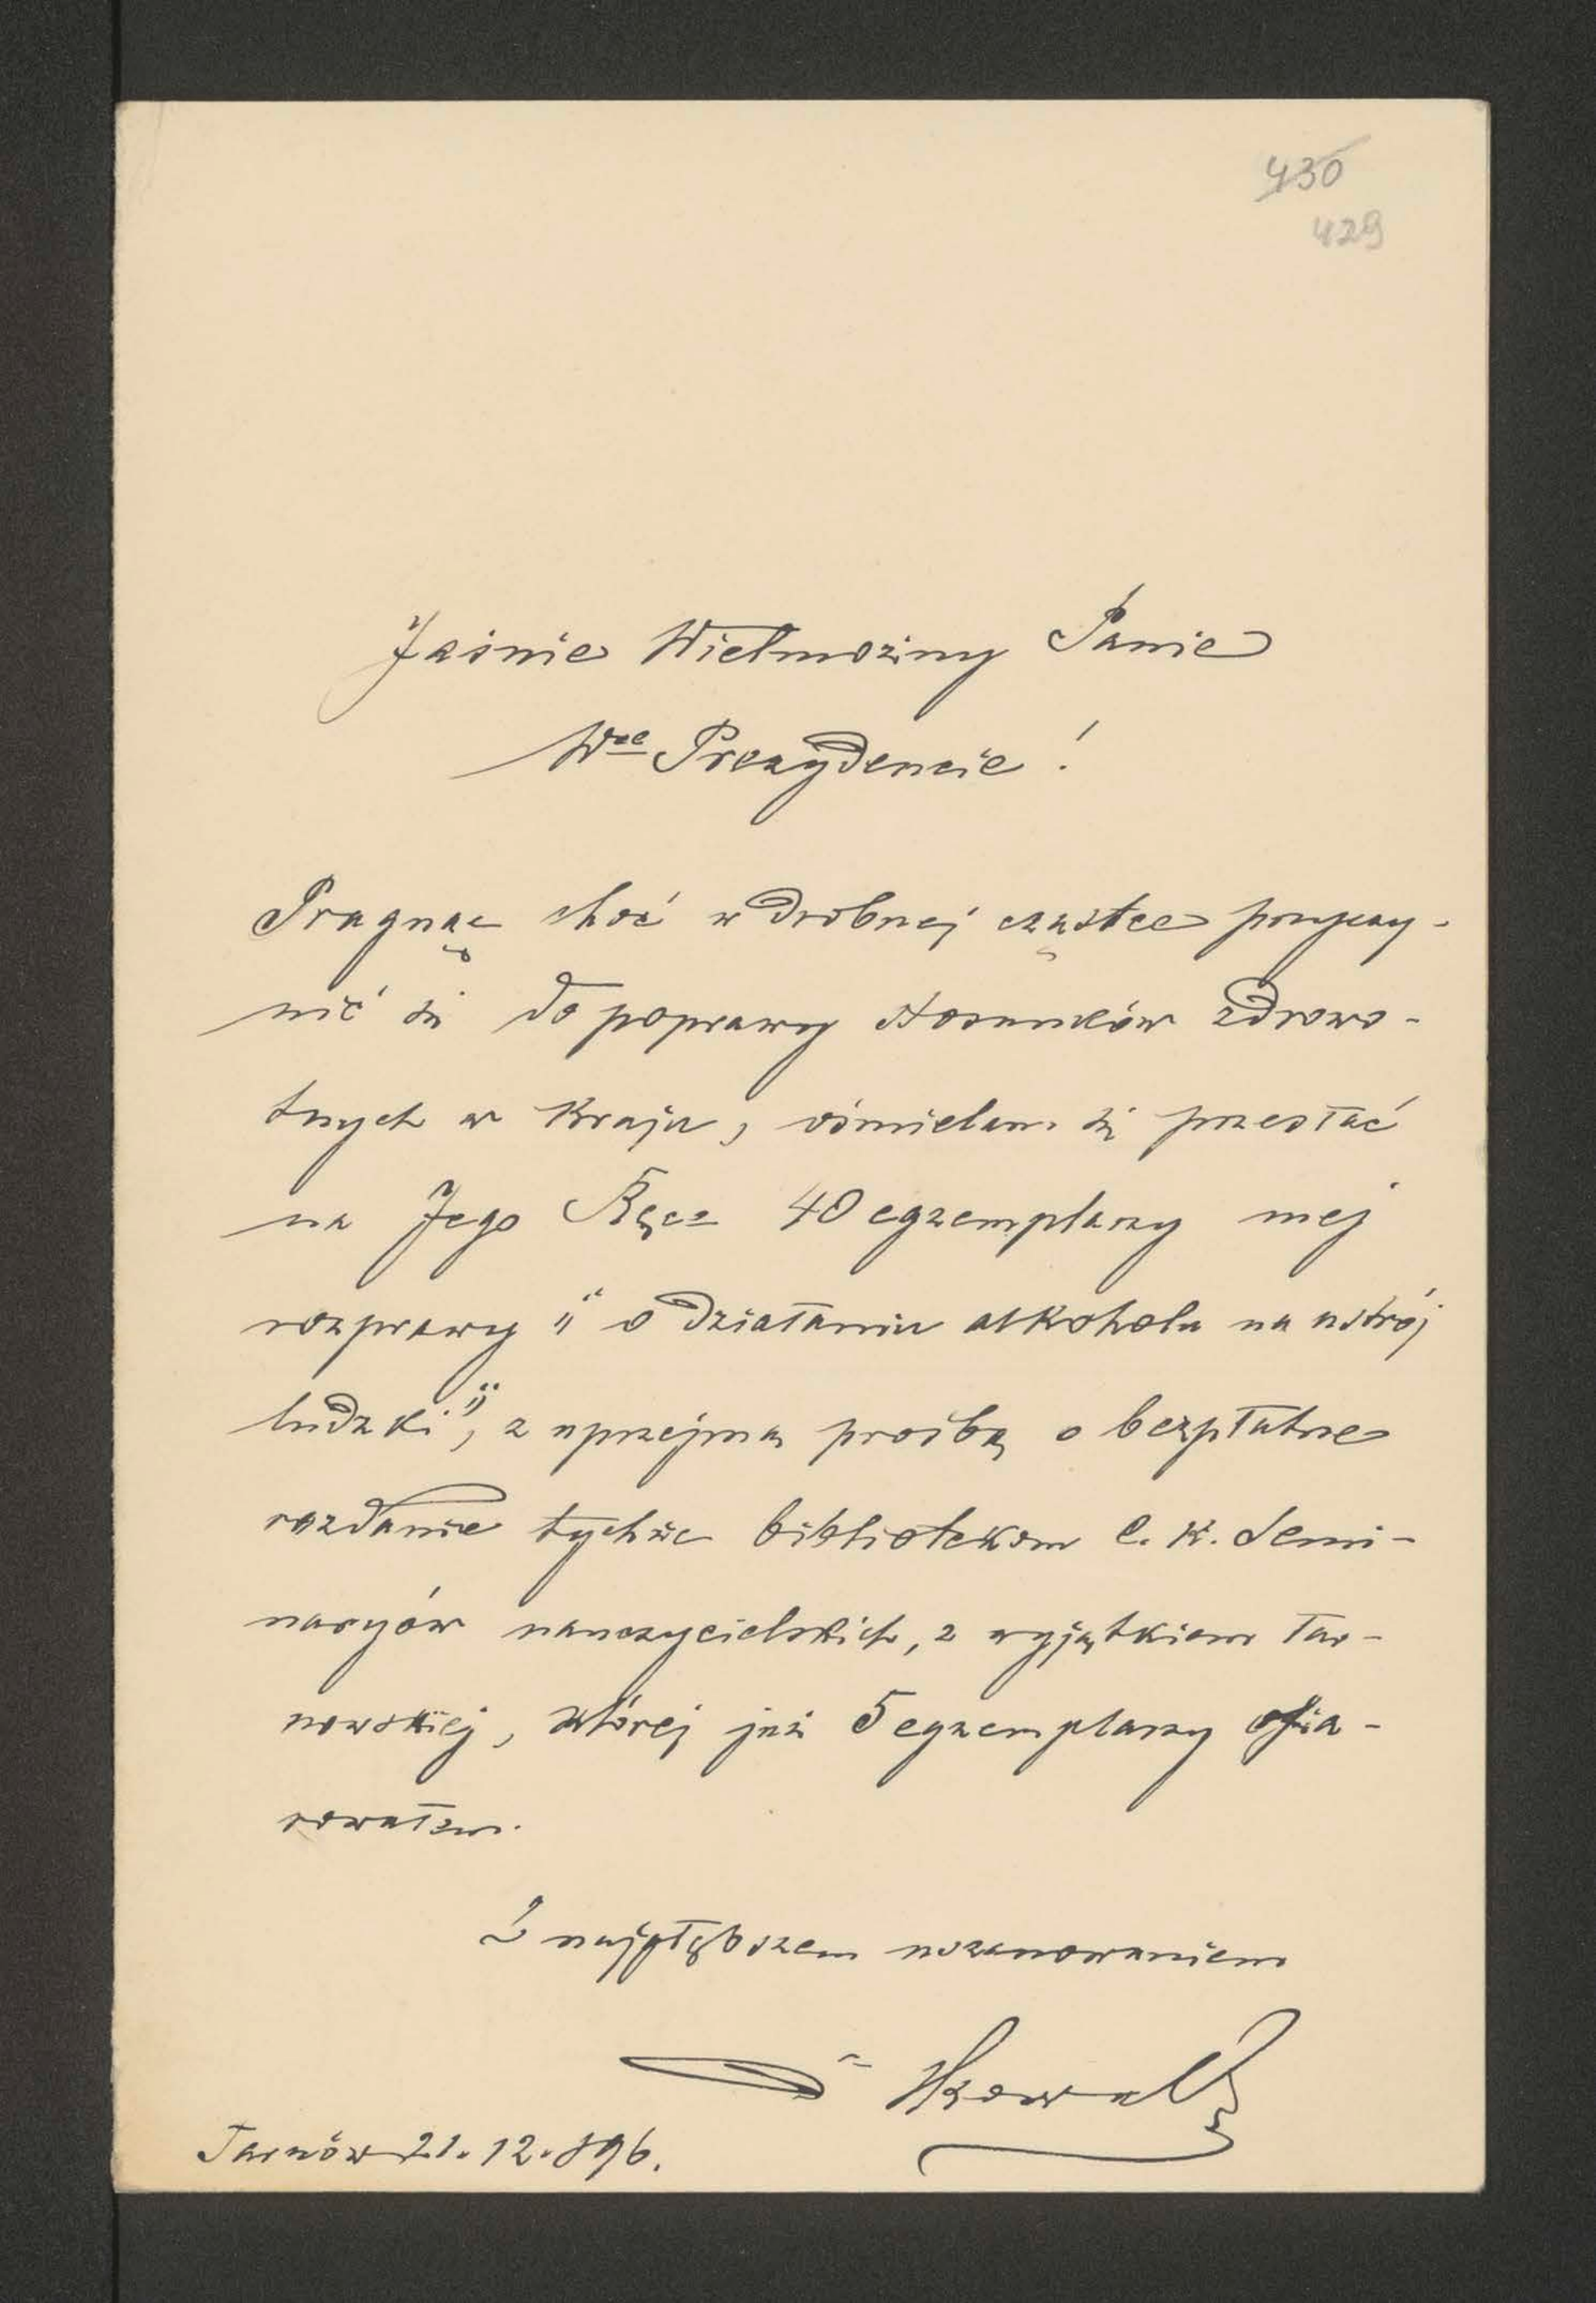 430
429
Jaśnie Wielmożny Panie
Wce Prezydencie!
Pragnąc choć w drobnej cząstce przyczy-
nić się do poprawy stosunków zdrowo-
tnych w Kraju, ośmielam się przesłać
na Jego Ręce 40 egzemplarzy mej
rozprawy "o działaniu alkoholu na ustrój
ludzki", z uprzejmą prośbą o bezpłatne
rozdanie tychże bibliotekom C. K. Semi-
naryów nauczycielskich, z wyjątkiem Tar-
nowskiej, której już 5 egzemplarzy ofia-
rowałem.
Z najgłębszem uszanowaniem
Dr Kowal
Tarnów 21. 12. 896.